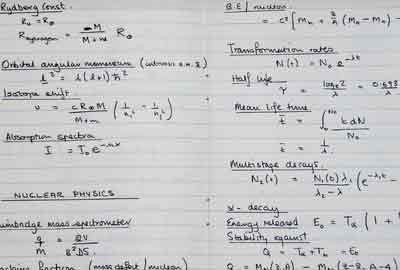 Rydberg Const.
R∞ = R∞
R hydrogen = M / M+m R∞
Orbital angular momentum
l² = l(l+1) ħ²
Isotope shift.
ν = cR∞M / M+m (1/n² - 1/n²)
Absorption spectra
I = I₀ e^-nx
NUCLEAR PHYSICS
mass spectrometer
q/M = 2V / B²DS
fraction (mass defect / nucleon)
B.E / nucleon
= c² [ Mn + Z/A (MH - Mn) -
Transformation rates
N(t) = N₀ e^-λt
Half life
τ = loge 2 / λ = 0.693 / λ
Mean life time
t̄ = ∫ t dN / N₀
t̄ = 1/λ
Multistage decays.
N₂(t) = N₁(0) λ₁ / λ₂ - λ₁ ( e^-λ₁t -
α - decay
Energy released E₀ = Tα ( 1 +
Stability against
Q = Tα + Tb = E₀
Q = M (Z,A) - M (Z-2, A-4)